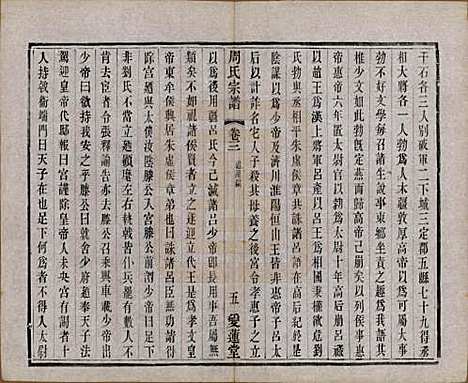 千石各三人別破軍二下城三定郡五縣七十九得丞
相大將各一人勃爲人木彊敦厚高帝以爲可屬大事
勃不好文學每召諸生說事東鄉坐而責之趣爲我語其
椎少文如此勃既定燕而歸高帝已崩矣以列侯事惠
帝惠帝六年置太尉官以勃爲太尉十年高后崩呂祿以
趙王爲漢上將軍呂產以呂王爲相國秉權欲危劉
氏勃與丞相平朱虛侯章共誅諸呂於是
陰謀以爲少帝及濟川淮陽恒山王皆非惠帝子呂太
后以計詐名它人子殺其母養之後宮令孝惠子之立
周氏宗譜 卷三 五 愛蓮堂
以爲後用彊呂氏今已滅諸呂少帝即長用事吾屬無
類矣不如視諸侯賢者立之遂迎立代王是爲孝文皇
帝東牟侯興居朱虛侯章弟也曰誅諸呂臣無功請得
除宮迺與太僕汝陰滕公入宮滕公前謂少帝曰足下
非劉氏不當立迺顧麾左右執戟者皆仆兵罷有數人不
肯去宦者令張釋諭告亦去滕公召乘輿車載少帝出
少帝曰欲持我安之乎滕公曰就舍少府迺奉天子法
駕迎皇帝代邸報曰宮謹除皇帝入未央宮有謁者十
人持戟衛端門曰天子在也足下何爲者不得入太尉